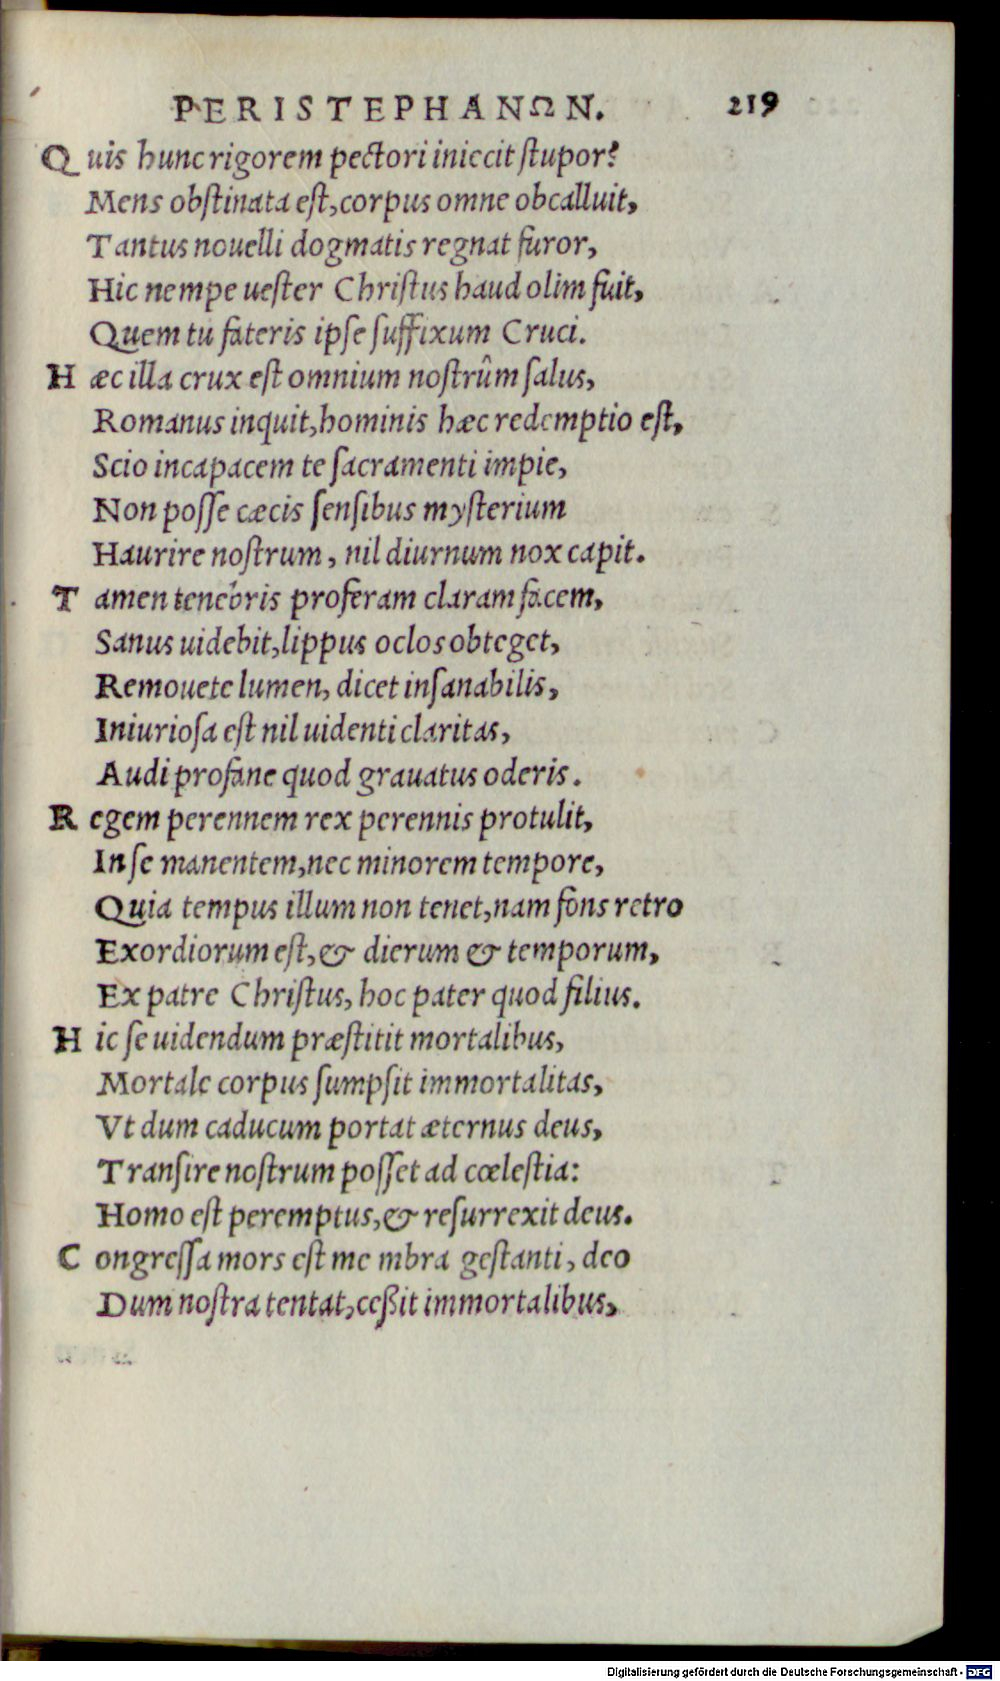 PERISTEPHANΩN. 219
Quis hunc rigorem pectori iniecit stupor?
Mens obstinata est, corpus omne obcalluit,
Tantus nouelli dogmatis regnat furor,
Hic nempe uester Christus haud olim fuit,
Quem tu fateris ipse suffixum Cruci.
Hæc illa crux est omnium nostrûm salus,
Romanus inquit, hominis hæc redemptio est,
Scio incapacem te sacramenti impie,
Non posse cæcis sensibus mysterium
Haurire nostrum, nil diurnum nox capit.
Tamen tenebris proferam claram facem,
Sanus uidebit, lippus oclos obteget,
Remouete lumen, dicet insanabilis,
Iniuriosa est nil uidenti claritas,
Audi profane quod grauatus oderis.
Regem perennem rex perennis protulit,
In se manentem, nec minorem tempore,
Quia tempus illum non tenet, nam fons retro
Exordiorum est, & dierum & temporum,
Ex patre Christus, hoc pater quod filius.
Hic se uidendum præstitit mortalibus,
Mortale corpus sumpsit immortalitas,
Vt dum caducum portat æternus deus,
Transire nostrum posset ad cœlestia:
Homo est peremptus, & resurrexit deus.
Congressa mors est me mbra gestanti, deo
Dum nostra tentat, ceßit immortalibus,
Digitalisierung gefördert durch die Deutsche Forschungsgemeinschaft - DFG